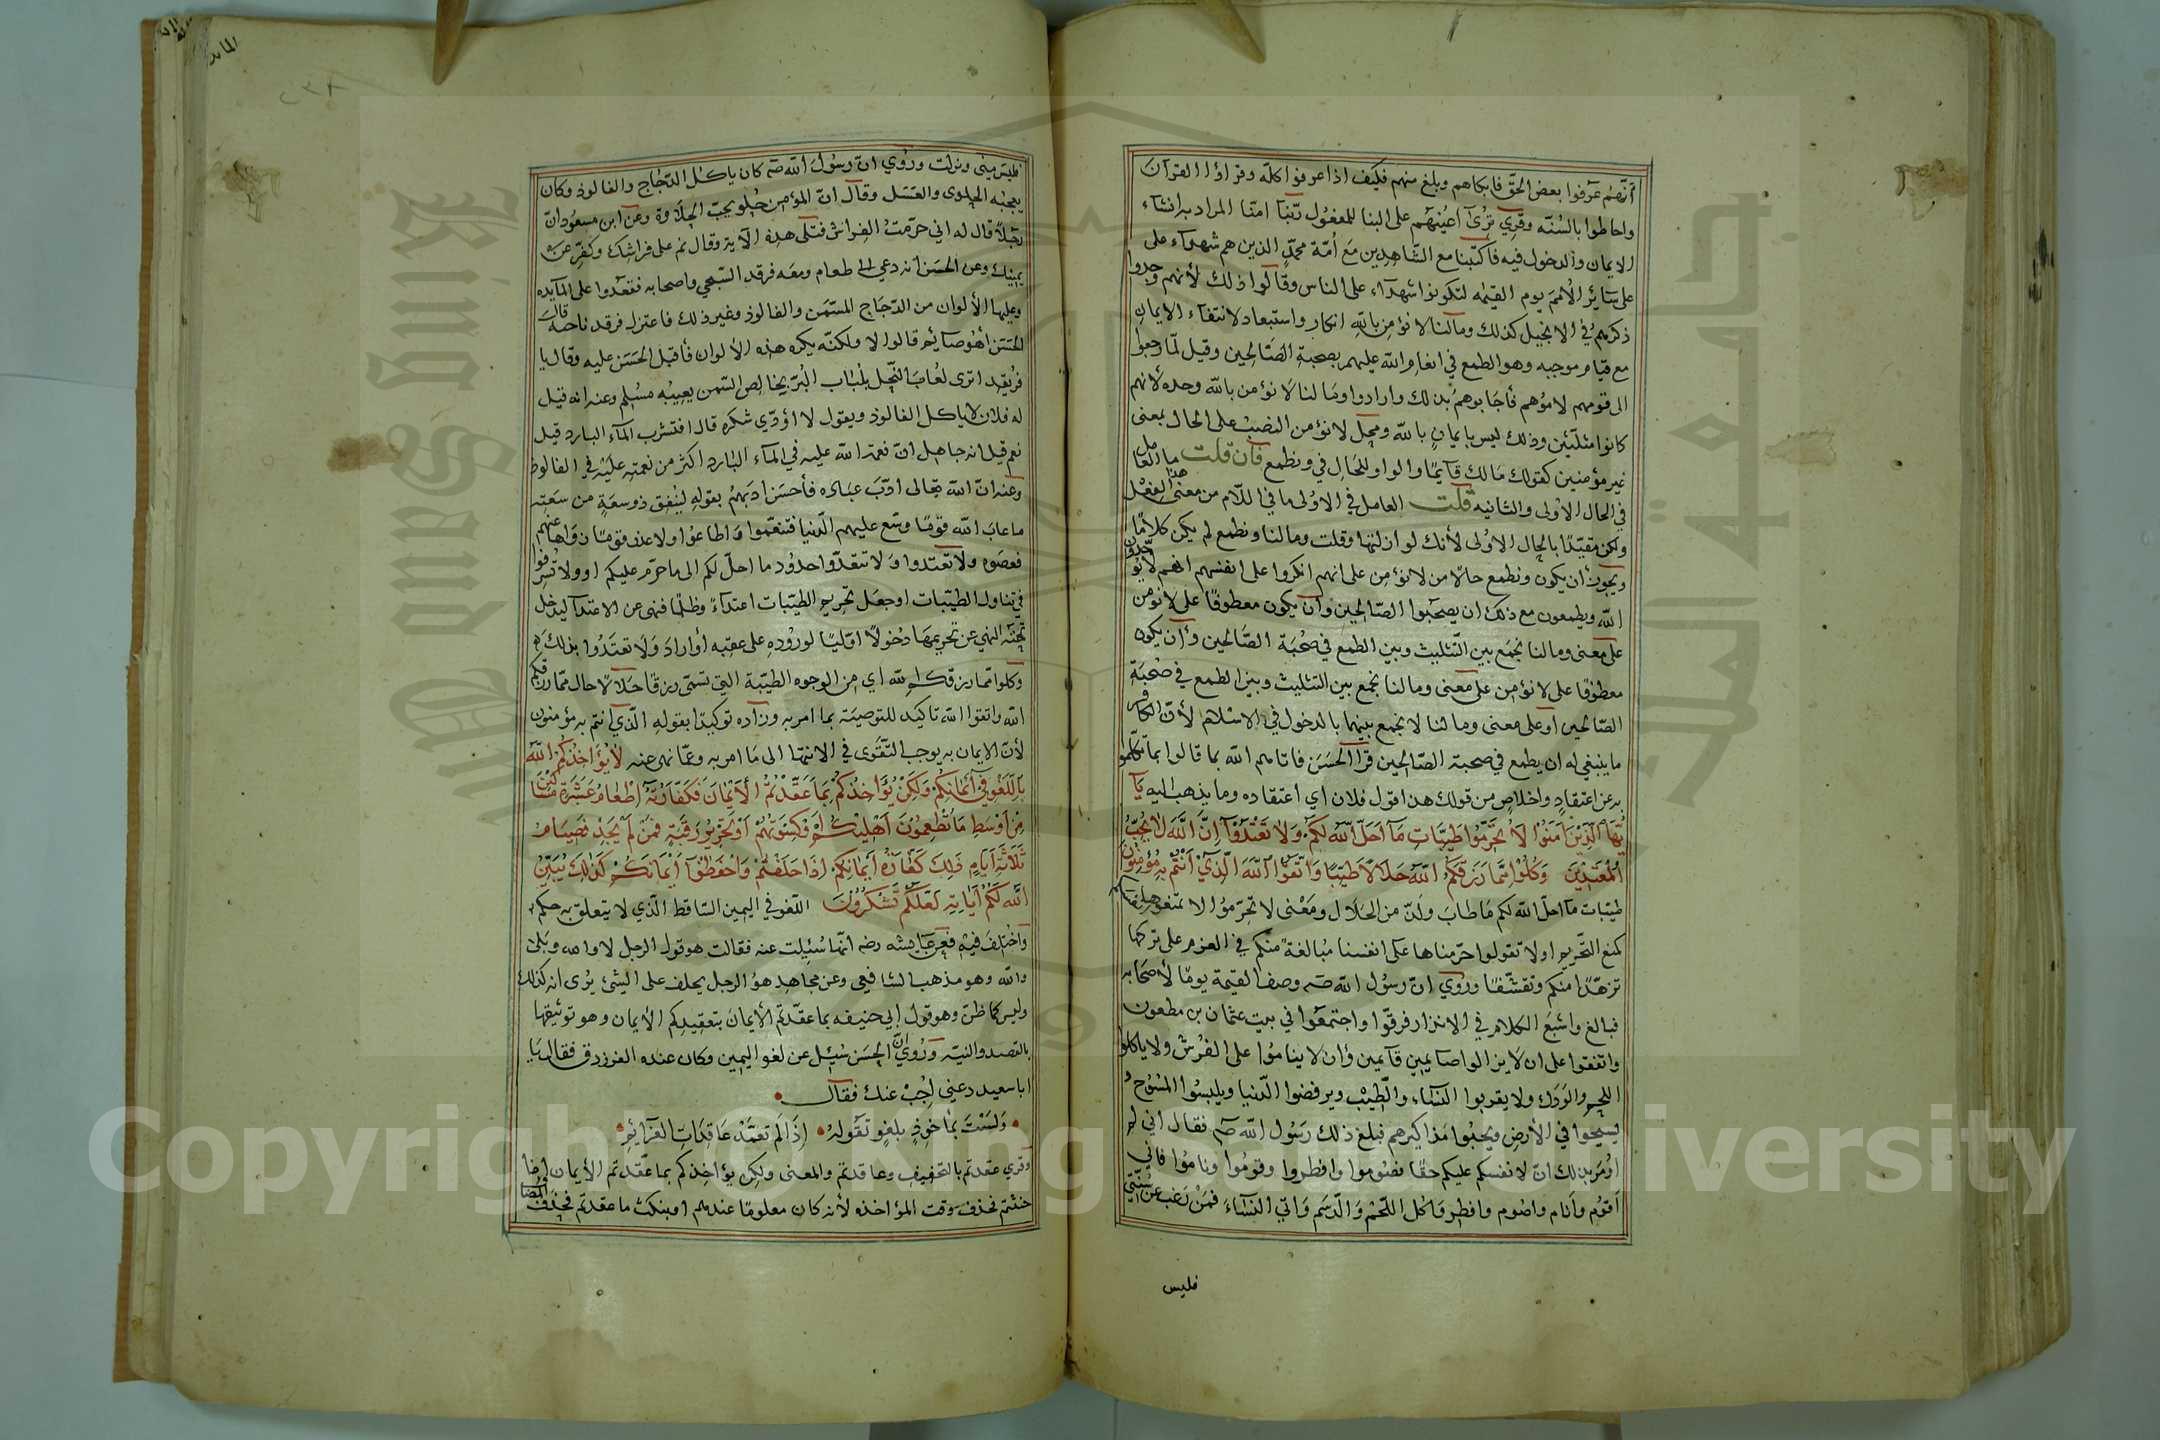 أنهم عرفوا بعض الحق فابكاهم وبلغ منهم فكيف اذا عرفوا كله وقراؤا القرآن
واحاطوا بالسنه وقري ترى أعينهم على البنا للمفعول ربنا امنا المراد به انشاء
الايمان والدخول فيه فاكتبنا مع الشاهدين مع أمة محمد الذين هم شهداء على
سائر الأمم يوم القيمه لتكونوا شهداء على الناس وقالوا ذلك لأنهم وجدوا
ذكرهم في الانجيل كذلك ومالنا لا نؤمن بالله انكار واستبعاد لانتفاء الايمان
مع قيام موجبه وهو الطمع في انعام الله عليهم بصحبة الصالحين وقيل لما رجعوا
الى قومهم لاموهم فأجابوهم بذلك وارادوا ومالنا لا نؤمن بالله وحده لأنهم
كانوا مثلثين وذلك ليس بايمان بالله ومحل لا نؤمن النصب على الحال بمعنى
غير مؤمنين كقولك مالك قائما والواو للحال في ونطمع فان قلت ما العامل
في الحال الاولى والثانيه قلت العامل في الاولى ما في اللام من معنى الفعل
ولكن مقيدا بالحال الاولى لأنك لو ازلتها وقلت ومالنا ونطمع لم يكن كلاما
ويجوز أن يكون ونطمع حالا من لا نؤمن على انهم انكروا على انفسهم انهم لا يوحدون
الله ويطمعون مع ذلك ان يصحبوا الصالحين وأن يكون معطوفا على لا نؤمن
على معنى ومالنا نجمع بين التثليث وبين الطمع في صحبة الصالحين وأن يكون
معطوفا على لا نؤمن على معنى ومالنا نجمع بين التثليث وبين الطمع في صحبة
الصالحين او على معنى ومالنا لا نجمع بينهما بالدخول في الاسلام لأن الكافر
ما ينبغي له ان يطمع في صحبة الصالحين قرا الحسن فاتاهم الله بما قالوا بما تكلموا
به عن اعتقاد واخلاص من قولك هذا قول فلان اي اعتقاده وما يذهب اليه يآ
يها الذين آمنوا لا تحرموا طيبات ما احل الله لكم ولا تعتدوا إن الله لا يحب
المعتدين وكلوا مما رزقكم الله حلالا طيبا واتقوا الله الذي أنتم به مؤمنون
طيبات ما احل الله لكم ما طاب ولذ من الحلال ومعنى لا تحرموا لا تمنعوها
كمنع التحريم او لا تقولوا حرمناها على انفسنا مبالغة منكم في العزم على تركها
تزهدا منكم وتقشفا وروي ان رسول الله صم وصف القيمة يوما لأصحابه
فبالغ واشبع الكلام في الانذار فرقوا واجتمعوا في بيت عثمان بن مظعون
واتفقوا على ان لا يزالوا صايمين قآيمين وأن لا يناموا على الفرش ولا ياكلوا
اللحم والودك ولا يقربوا النساء والطيب ويرفضوا الدنيا ويلبسوا المسوح و
يسيحوا في الأرض ويجبوا مذاكيرهم فبلغ ذلك رسول الله صم فقال اني لم
اومر بذلك ان لانفسكم عليكم حقا فصوموا وافطروا وقوموا وناموا فاني
أقوم وأنام واصوم وافطر وآكل اللحم والدسم وآتي النساء فمن رغب عن سنتي
فليس
فليس مني ونزلت وروي ان رسول الله صم كان ياكل الدجاج والفالوذ وكان
يعجبه الحلوى والعسل وقال ان المؤمن حلو يحب الحلاوة وعن ابن مسعود ان
رجلا قال له اني حرمت الفراش فتلى هذه الآية وقال نم على فراشك وكفر عن
يمينك وعن الحسن انه دعي الى طعام ومعه فرقد السبخي واصحابه فقعدوا على المآيده
وعليها الألوان من الدجاج المسمن والفالوذ وغير ذلك فاعتزل فرقد ناحية قال
الحسن أهو صآيم قالوا لا ولكنه يكره هذه الألوان فأقبل الحسن عليه وقال يا
فريقد اترى لعاب النحل بلباب البر بخالص السمن يعيبه مسلم وعنه انه قيل
له فلان لا ياكل الفالوذ ويقول لا أؤدي شكره قال افتشرب المآء البارد قيل
نعم قيل انه جاهل ان نعمة الله عليه في المآء البارد اكثر من نعمته عليه في الفالوذ
وعنه ان الله تعالى ادب عباده فأحسن ادبهم بقوله لينفق ذو سعة من سعته
ما عاب الله قوما وسع عليهم الدنيا فتنعموا واطاعوا ولا عذر قوما زواها عنهم
فعصوه ولا تعتدوا ولا تتعدوا حدود ما احل لكم الى ما حرم عليكم او ولا تسرفوا
في تناول الطيبات او جعل تحريم الطيبات اعتداء وظلما فنهى عن الاعتدا ليدخل
تحته النهي عن تحريمها دخولا اوليا لوروده على عقبه أو اراد ولا تعتدوا بذلك
وكلوا مما رزقكم الله اي من الوجوه الطيبة التي تسمى رزقا حلالا حال مما رزقكم
الله واتقوا الله تاكيد للتوصية بما امر به وزاده توكيدا بقوله الذي انتم به مؤمنون
لأن الايمان به يوجب التقوى في الانتها الى ما امر به وعما نهى عنه لا يؤاخذكم الله
باللغو في أيمانكم ولكن يؤاخذكم بما عقدتم الأيمان فكفارته إطعام عشرة مساكين
من اوسط ما تطعمون اهليكم او كسوتهم او تحرير رقبة فمن لم يجد فصيام
ثلاثة أيام ذلك كفارة أيمانكم اذا حلفتم واحفظوا أيمانكم كذلك يبين
الله لكم آياته لعلكم تشكرون اللغو في اليمين الساقط الذي لا يتعلق به حكم
واختلف فيه فعن عائشه رضه انها سئلت عنه فقالت هو قول الرجل لا والله وبلى
والله وهو مذهب الشافعي وعن مجاهد هو الرجل يحلف على الشئ يرى انه كذلك
وليس كما ظن وهو قول ابي حنيفه بما عقدتم الأيمان بتعقيدكم الأيمان وهو توثيقها
بالقصد والنيه وروي أن الحسن سئل عن لغو اليمين وكان عنده الفرزدق فقال يا
ابا سعيد دعني اجب عنك فقال
ولست بماخوذ بلغو تقوله إذا لم تعمد عاقدات العزائم
وقري عقدتم بالتخفيف وعاقدتم والمعنى ولكن يؤاخذكم بما عقدتم الأيمان إذا
حنثتم فحذف وقت المؤاخذه لأنه كان معلوما عندهم او بنكث ما عقدتم فحذف المضا